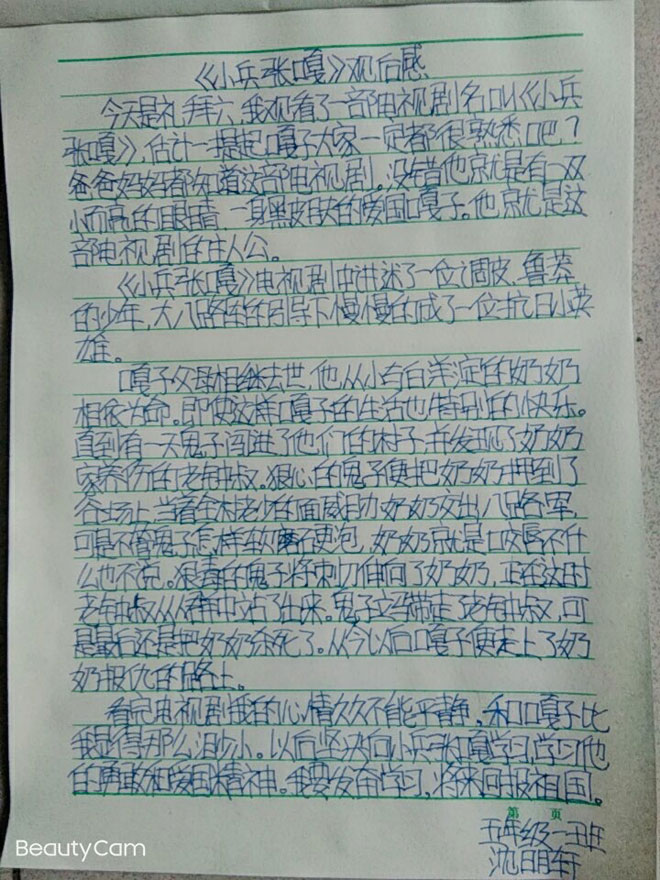 《小兵张嘎》观后感
今天是礼拜六,我观看了一部电视剧名叫《小兵
张嘎》,估计一提起嘎子大家一定都很熟悉吧?
爸爸妈妈都知道这部电视剧。没错他就是有一双
小而亮的眼睛,一身黑皮肤的爱国嘎子。他就是这
部电视剧的主人公。
《小兵张嘎》电视剧中讲述了一位调皮、鲁莽
的少年,在八路军的引导下慢慢的成了一位抗日小英
雄。
嘎子父母相继去世,他从小与白洋淀的奶奶
相依为命。即使这样嘎子的生活也特别的快乐。
直到有一天鬼子闯进了他们的村子,并发现了奶奶
家养伤的老钟叔。狠心的鬼子便把奶奶押到了
谷场上,当着全村老少的面威胁奶奶交出八路军,
可是不管鬼子怎样软磨硬泡,奶奶就是咬唇不什
么也不说。狠毒的鬼子将刺刀伸向了奶奶,正在这时
老钟叔从人群中站了出来。鬼子立马带走了老钟叔,可
是最后还是把奶奶杀死了。从今以后嘎子便走上了奶
奶报仇的路上。
看完电视剧我的心情久久不能平静,和嘎子比
我显得那么渺小。以后坚决向小兵张嘎学习,学习他
的勇敢和爱国精神。我要发奋学习,将来回报祖国。
第 页
五年级一班
沈明轩
BeautyCam